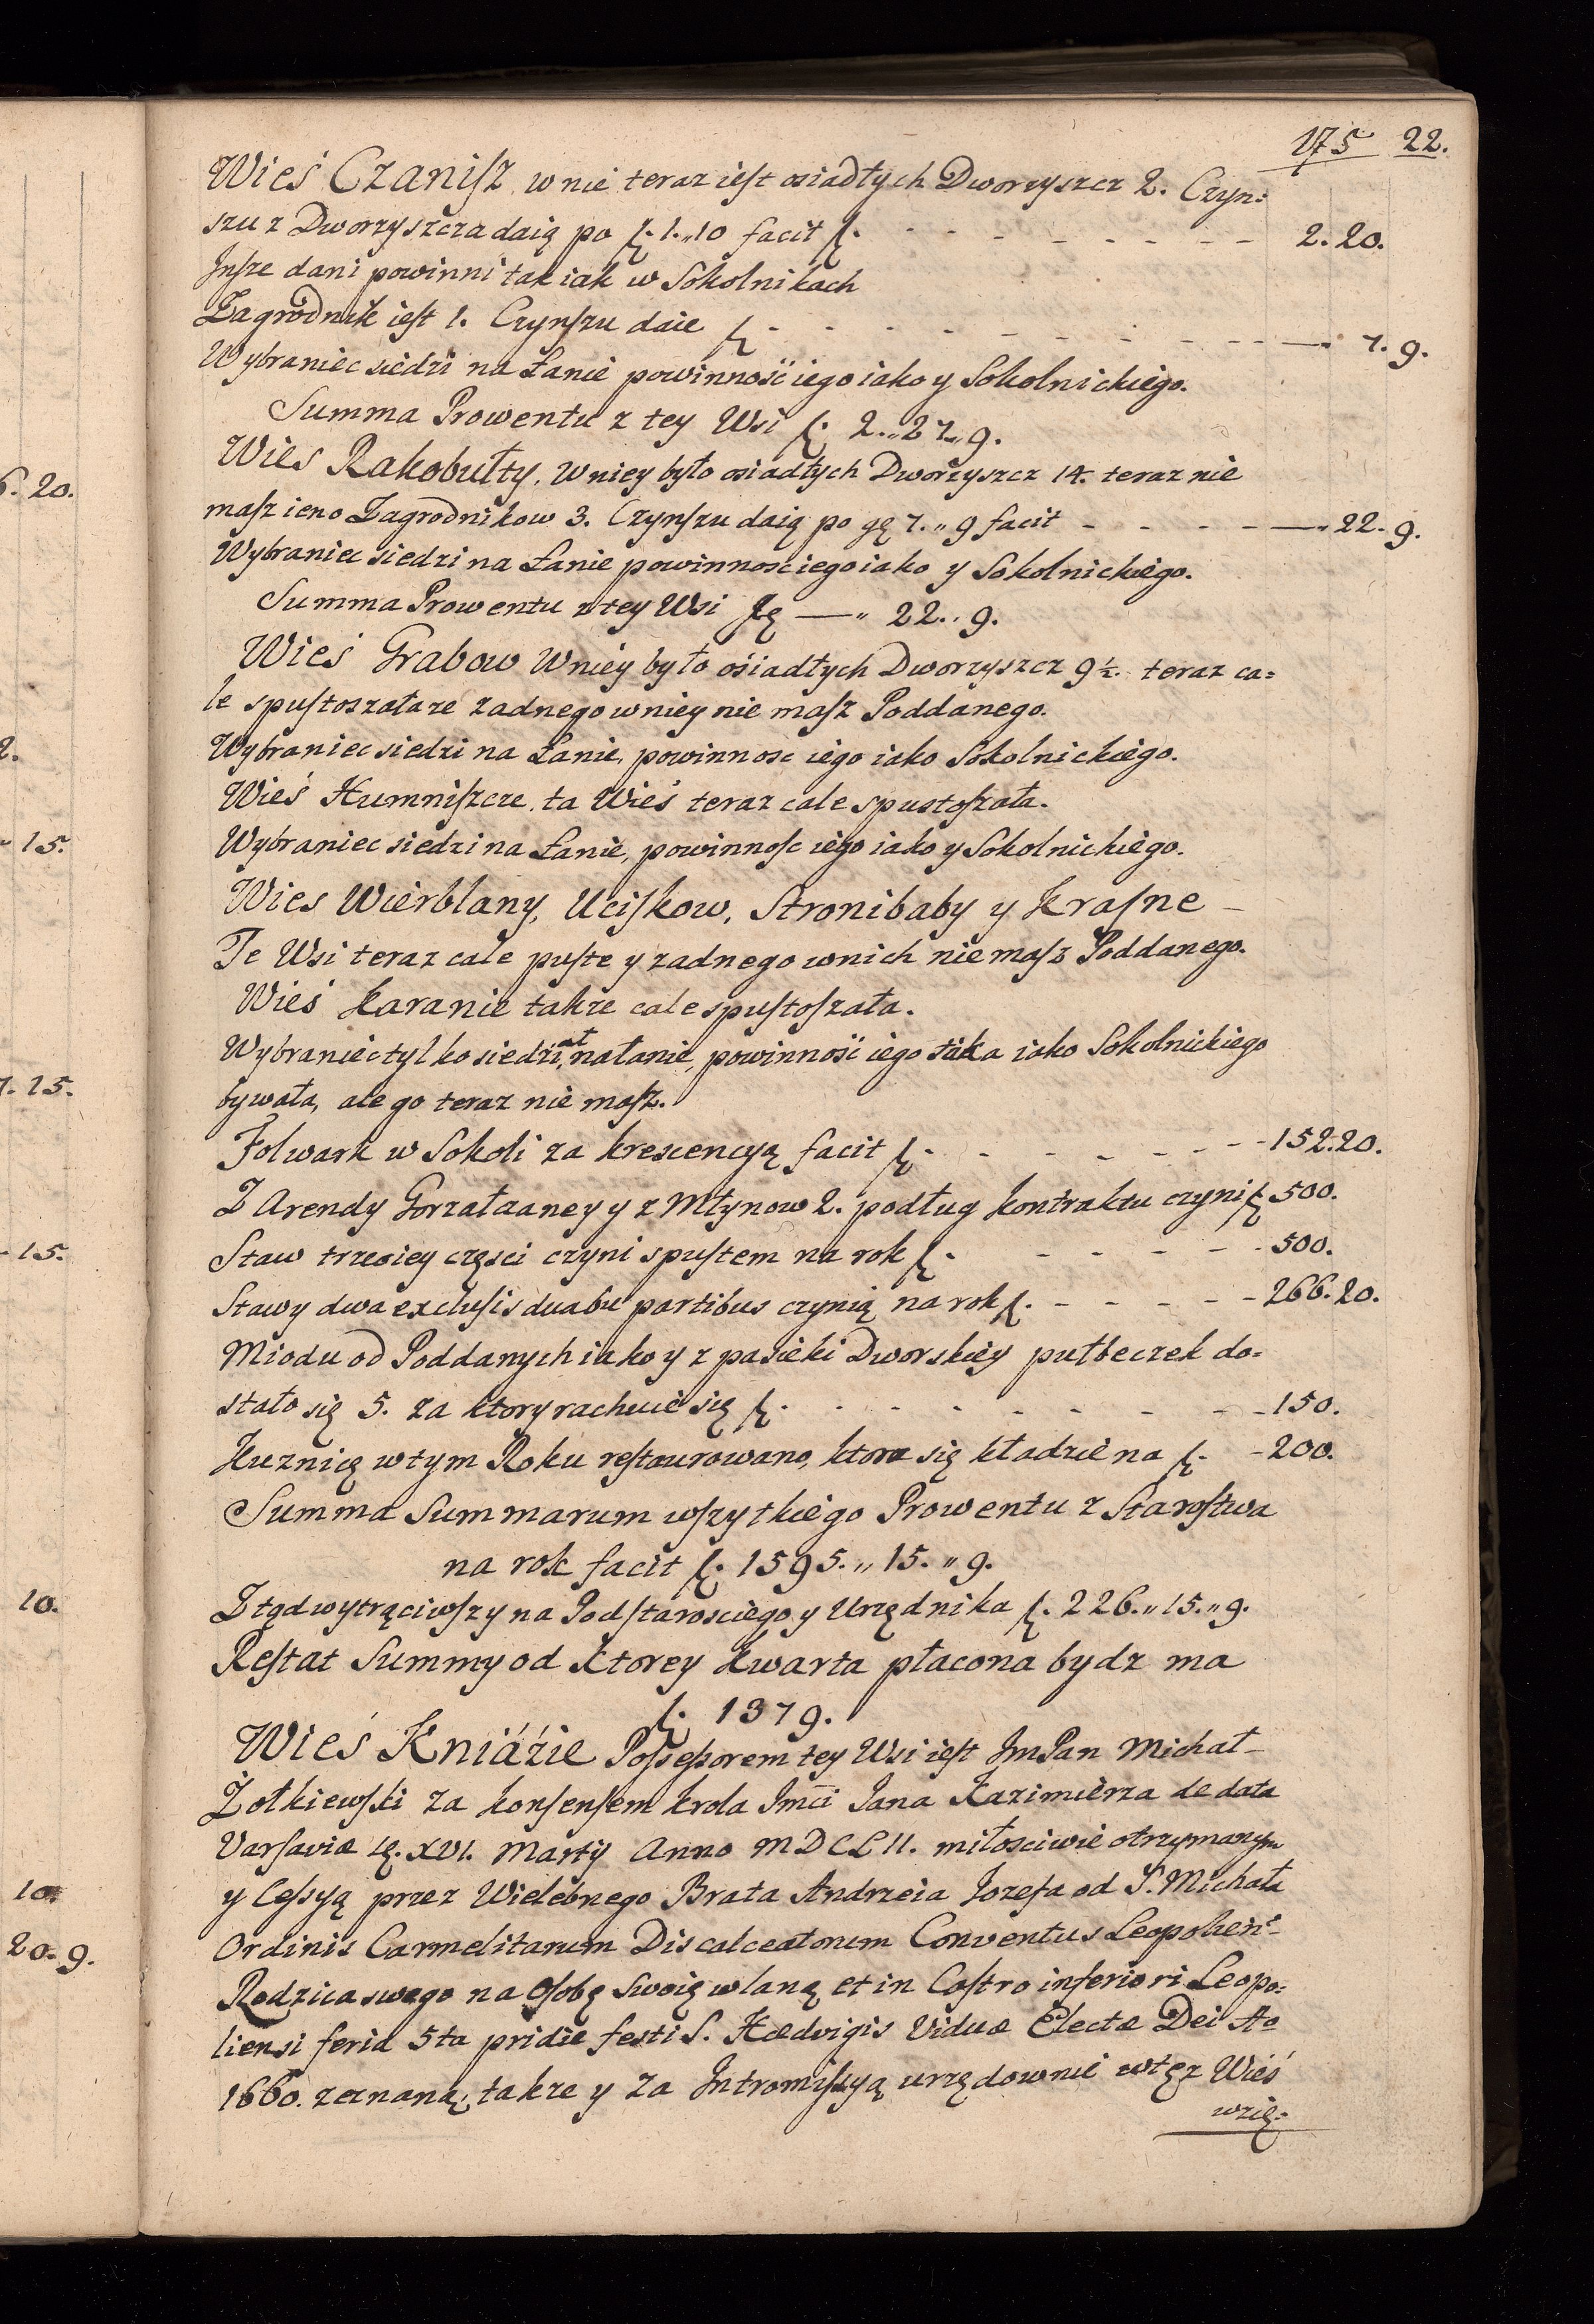 175 22.
Wieś Czanisz w nie teraz iest osiadłych Dworzyszcz 2. Czyn=
szu z Dworzyszcza daią po f. 1.„10 facit f. - - - - - - - - 2. 20.
Jnsze dani powinni tak iak w Sokolnikach
Zagrodnik iest 1. Czynszu daie f. - - - - - - - - — 7. 9.
Wybraniec siedzi na Łanie powinność iego iako y Sokolnickiego.
Summa Prowentu z tey Wsi f. 2.„27„9.
Wies Rakobułty, w niey było osiadłych Dworzyszcz 14. teraz nie
masz ieno Zagrodnikow 3. Czynszu daią po gę 7.„9 facit - - - - —„22. 9.
Wybraniec siedzi na Łanie powinnosc iego iako y Sokolnickiego.
Summa Prowentu z tey Wsi —„ 22.„9.
Wieś Grabow W niey było ośiadłych Dworzyszcz 9½. teraz ca=
le spustoszała ze zadnego w niey nie masz Poddanego.
Wybraniec siedzi na Łanie, powinnosc iego iako Sokolnickiego.
Wieś Humniszcze, ta Wieś teraz cale spustoszała.
Wybraniec siedzi na Łanie, powinnosc iego iako y Sokolnickiego.
Wies Wierblany, Uciskow, Stronibaby y Krasne -
Te Wsi teraz cale puste y zadnego w nich nie masz Poddanego.
Wieś Karanie takze cale spustoszała.
Wybraniec tylko siedzi,ał na łanie, powinność iego taka iako Sokolnickiego
bywała, ale go teraz nie masz.
Folwark w Sokoli za krescencyą facit f. - - - - - - - 152. 20.
Z Arendy Gorzałczaney y z Młynow 2. podług kontraktu czyni f. 500.
Staw trzeciey części czyni spustem na rok f. - - - - - - 500.
Stawy dwa exclusis duabu partibus czynią na rok f. - - - - - 266. 20.
Miodu od Poddanych iako y z pasieki Dworskiey pułbeczek do=
stało się 5. za ktory rachuie się f. - - - - - - - - 150.
Kuznicę w tym Roku restaurowano, ktora się kładzie na f. - 200.
Summa Summarum wszytkiego Prowentu z Starostwa
na rok facit f. 1595.„15.„9.
Ztąd wytrąciwszy na Podstarosciego y Urzędnika f. 226.„15.„9.
Restat Summy od Ktorey Kwarta płacona bydz ma
f. 1379.
Wieś Kniáźie Possessorem tey Wsi iest JmPan Michał -
Żołkiewski za konsensem Krola Jmći Jana Kazimierza de data
Varsaviæ XVI. Martÿ Anno MDCLII. miłosciwie otrzymanym
y Cessyą przez Wielebnego Brata Andrzeia Jozefa od S. Michała
Ordinis Carmelitarum Discalceatorum Conventus Leopolień:
Rodzica swego na Osobę Swoię wlaną et in Castro inferiori Leopo=
liensi feria 5ta pridie festi S. Hædvigis Viduæ Electæ Dei Ao
1660. zeznaną, takze y za Jntromissyą urzędownie w tęz Wieś
wzię=
6. 20.
2.
- 15.
7. 15.
- 15.
10.
10.
20. 9.